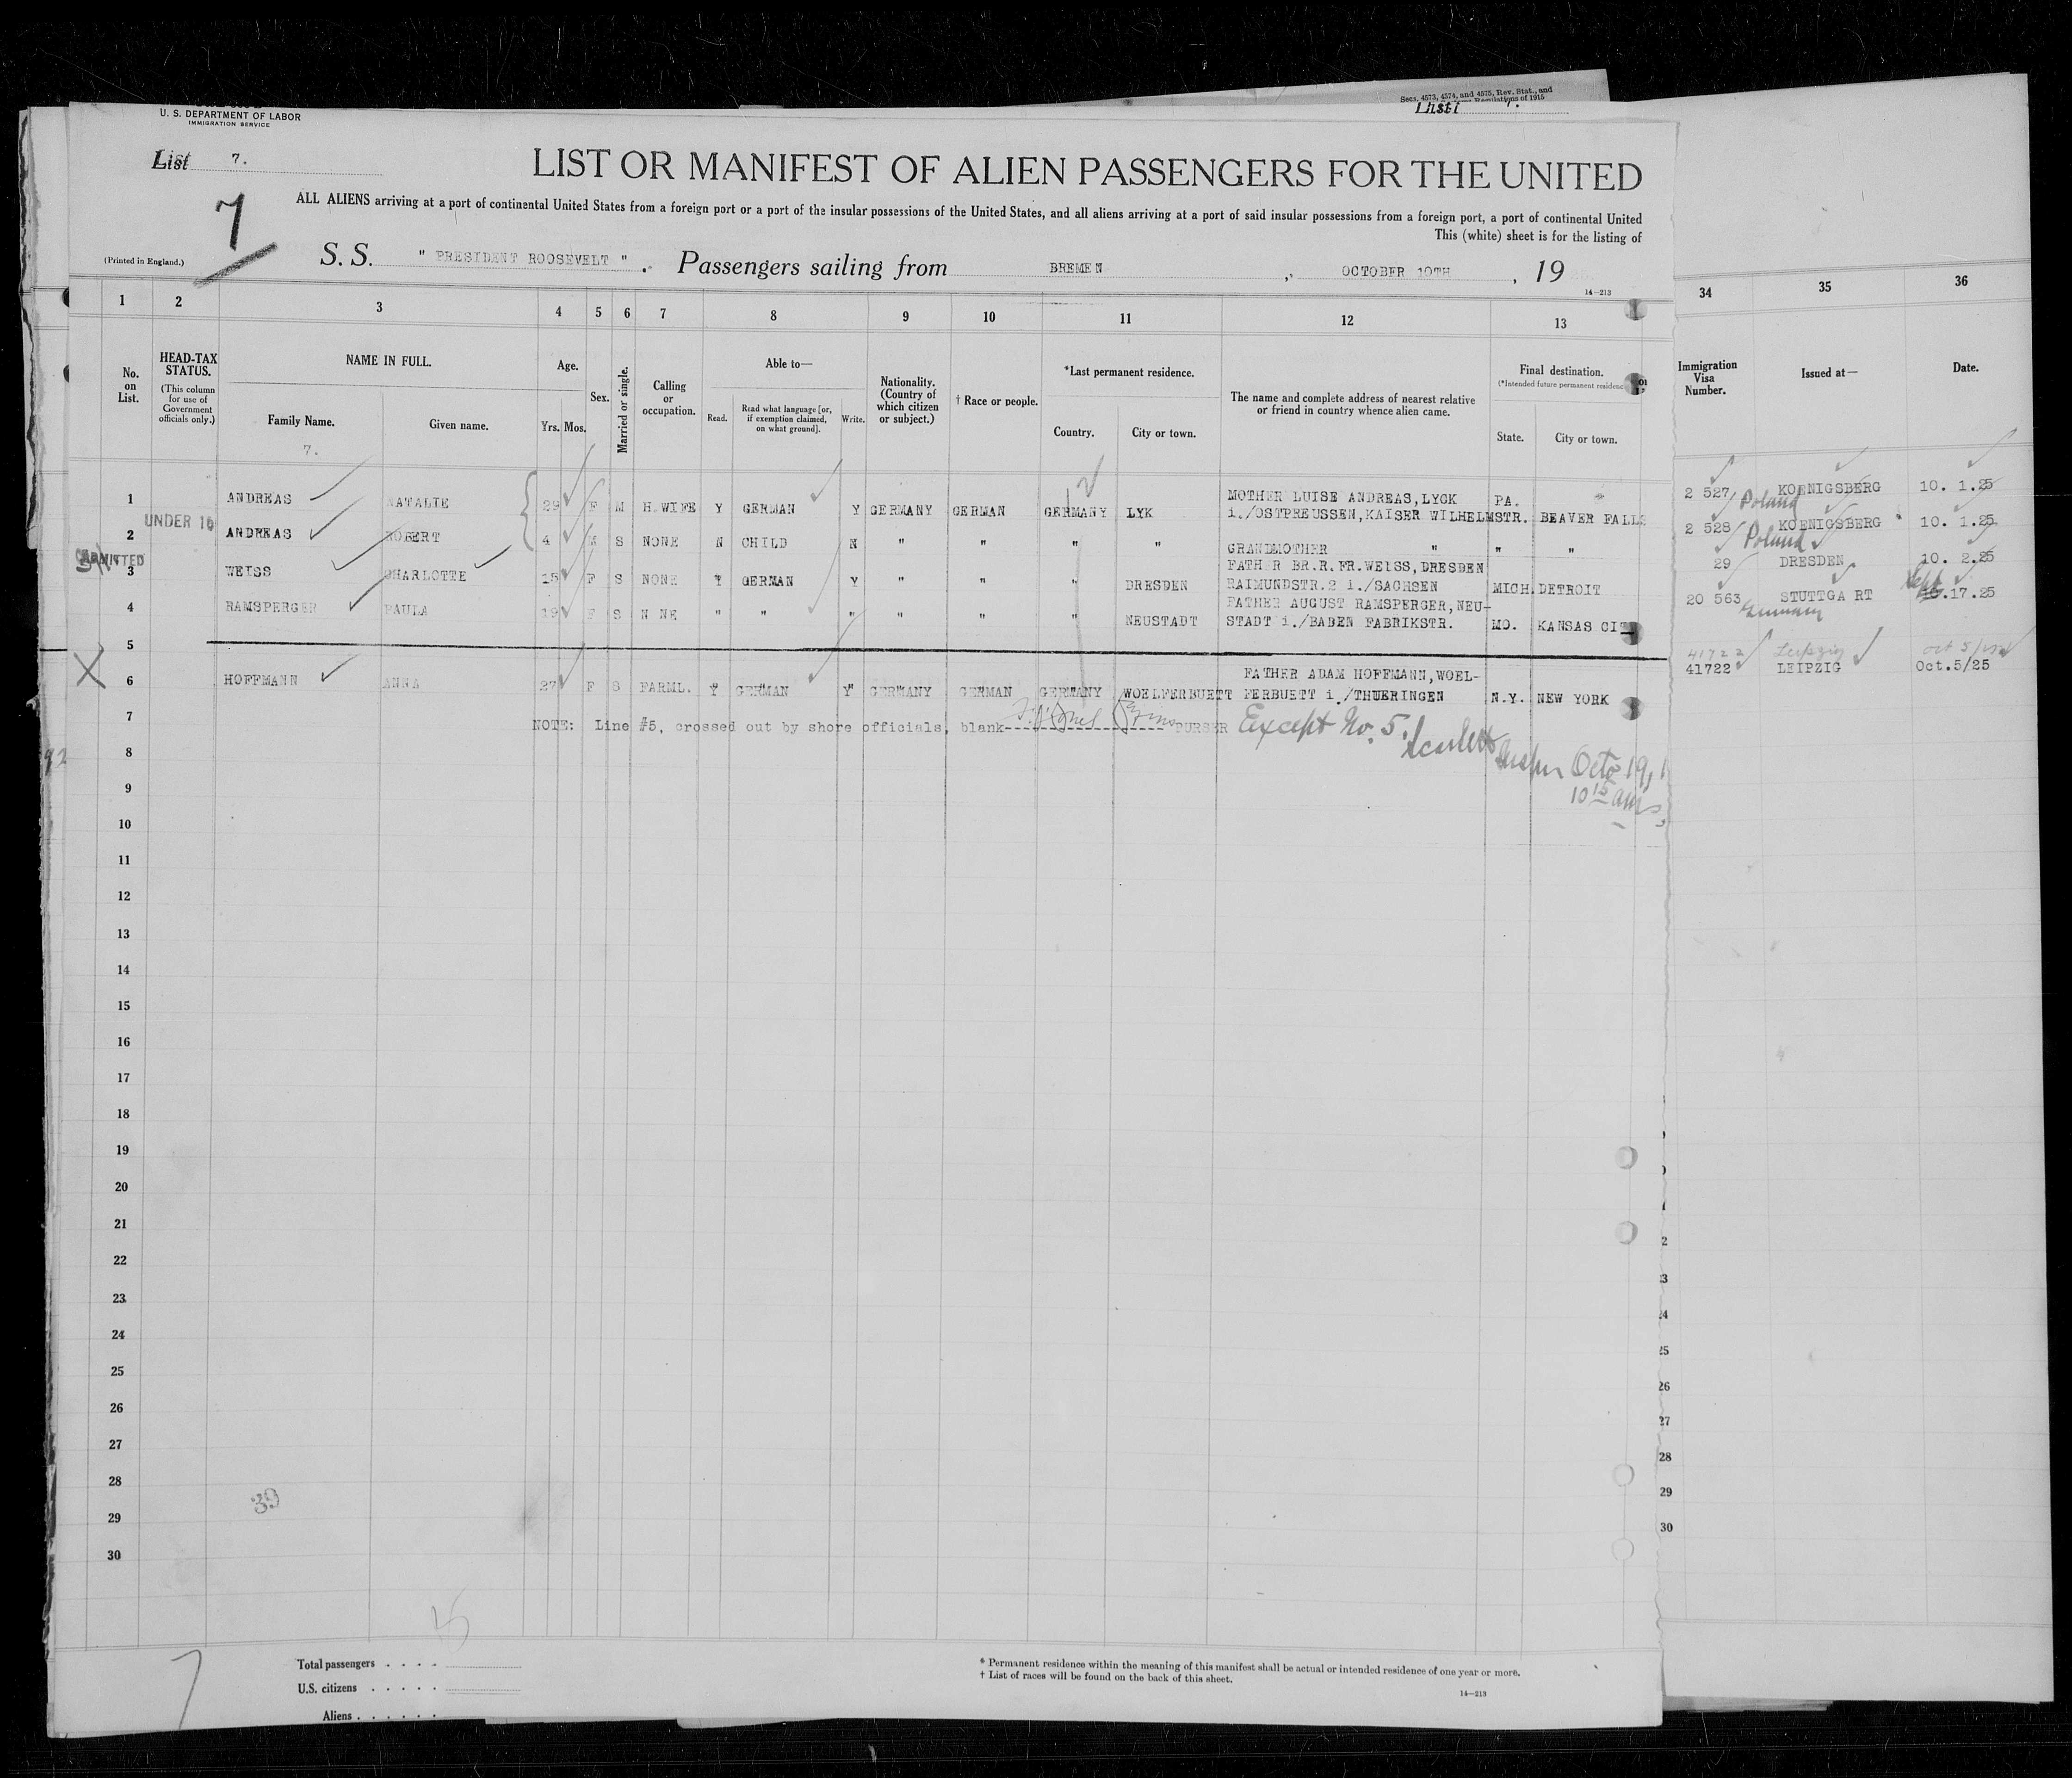 Secs. 4573, 4574, and 4575, Rev. Stat., and
Regulations of 1915
U. S. DEPARTMENT OF LABOR
IMMIGRATION SERVICE
List 7.
7
LIST OR MANIFEST OF ALIEN PASSENGERS FOR THE UNITED
ALL ALIENS arriving at a port of continental United States from a foreign port or a port of the insular possessions of the United States, and all aliens arriving at a port of said insular possessions from a foreign port, a port of continental United
This (white) sheet is for the listing of
(Printed in England.)
S. S. " PRESIDENT ROOSEVELT " . Passengers sailing from BREMEN , OCTOBER 10TH , 19
14—213
1 2 3 4 5 6 7 8 9 10 11 12 13 34 35 36
No. on List.
HEAD-TAX STATUS.
(This column for use of Government officials only.)
NAME IN FULL.
Family Name.
Given name.
7.
Age.
Yrs. Mos.
Sex.
Married or single.
Calling or occupation.
Able to—
Read.
Read what language [or, if exemption claimed, on what ground].
Write.
Nationality. (Country of which citizen or subject.)
† Race or people.
*Last permanent residence.
Country.
City or town.
The name and complete address of nearest relative or friend in country whence alien came.
Final destination.
(*Intended future permanent residence
State.
City or town.
Immigration Visa Number.
Issued at—
Date.
1 ANDREAS NATALIE 29 F M H.WIFE Y GERMAN Y GERMANY GERMAN GERMANY LYK MOTHER LUISE ANDREAS, LYCK i./OSTPREUSSEN, KAISER WILHELMSTR. PA. BEAVER FALLS 2 527 Poland KOENIGSBERG 10. 1.25
2 UNDER 16 ANDREAS ROBERT 4 M S NONE N CHILD N " " " " GRANDMOTHER " " " 2 528 Poland KOENIGSBERG 10. 1.25
ADMITTED
3 WEISS CHARLOTTE 15 F S NONE Y GERMAN Y " " " DRESDEN FATHER BR.R.FR.WEISS, DRESDEN RAIMUNDSTR.2 i./SACHSEN MICH. DETROIT 29 DRESDEN 10. 2.25
4 RAMSPERGER PAULA 19 F S N NE " " " " " " NEUSTADT FATHER AUGUST RAMSPERGER, NEU-STADT i./BADEN FABRIKSTR. MO. KANSAS CIT 20 563 Germany STUTTGA RT Sept .17.25
5 41722 Leipzig Oct 5/
6 HOFFMANN ANNA 27 F S FARML. Y GERMAN Y GERMANY GERMAN GERMANY WOELFERBUETT FATHER ADAM HOFFMANN, WOEL-FERBUETT i./THUERINGEN N.Y. NEW YORK 41722 LEIPZIG Oct.5/25
7 NOTE: Line #5, crossed out by shore officials, blank PURSER Except No. 5.
8 Octo 19, 1
9 10 15 am
10
11
12
13
14
15
16
17
18
19
20
21
22
23
24
25
26
27
28
39
29
30
Total passengers . . . .
U.S. citizens . . . . .
Aliens . . . . . .
7
* Permanent residence within the meaning of this manifest shall be actual or intended residence of one year or more.
† List of races will be found on the back of this sheet.
14—213